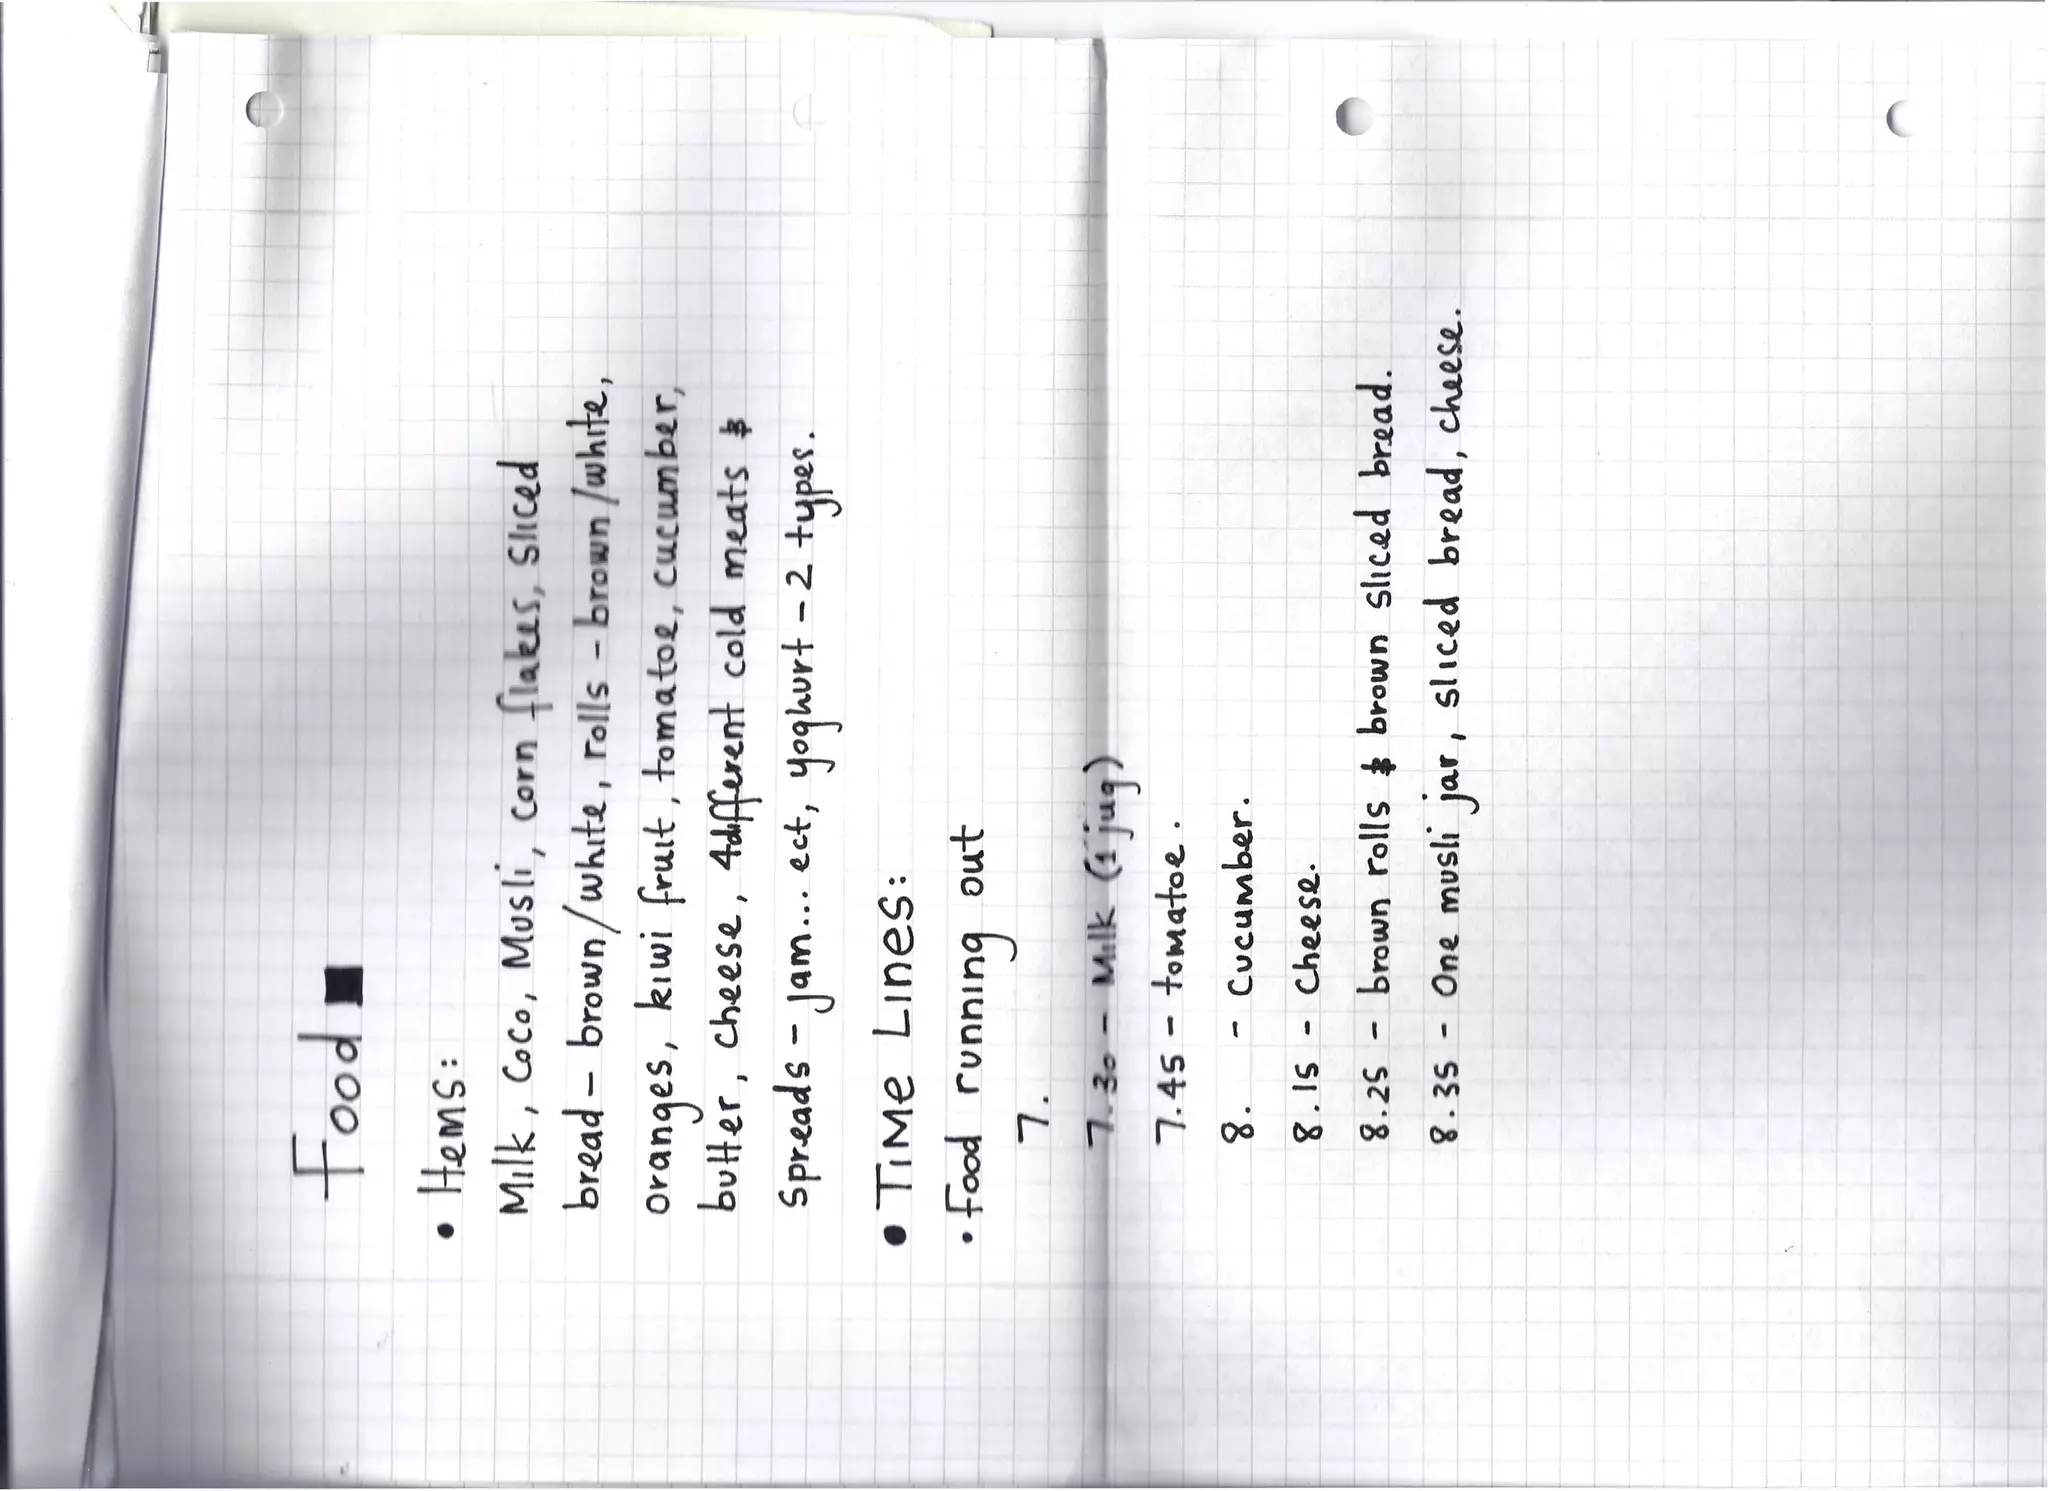 Food
• Items:
Milk, CoCo, Musli, corn flakes, sliced
bread - brown/white, rolls - brown/white,
oranges, kiwi fruit, tomatoe, cucumber,
butter, cheese, 4 different cold meats &
spreads - jam... ect, yoghurt - 2 types.
• TIMe LINeS:
• Food running out
7.
7.30 - Milk (1 jug)
7.45 - tomatoe.
8. - Cucumber.
8.15 - Cheese.
8.25 - brown rolls & brown sliced bread.
8.35 - One musli jar, sliced bread, cheese.